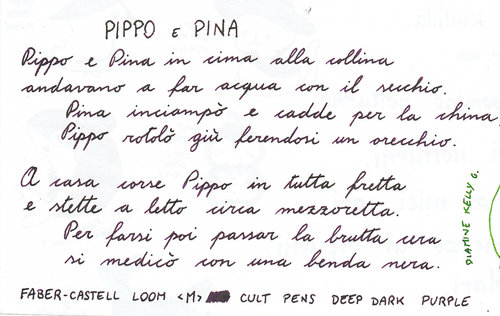 PIPPO E PINA
Pippo e Pina in cima alla collina
andavano a far acqua con il secchio.
Pina inciampò e cadde per la china,
Pippo rotolò giù ferendosi un orecchio.
A casa corse Pippo in tutta fretta
e stette a letto circa mezzoretta.
Per farsi poi passar la brutta cera
si medicò con una benda nera.
FABER-CASTELL LOOM <M> CULT PENS DEEP DARK PURPLE
DIAMINE KELLY G.